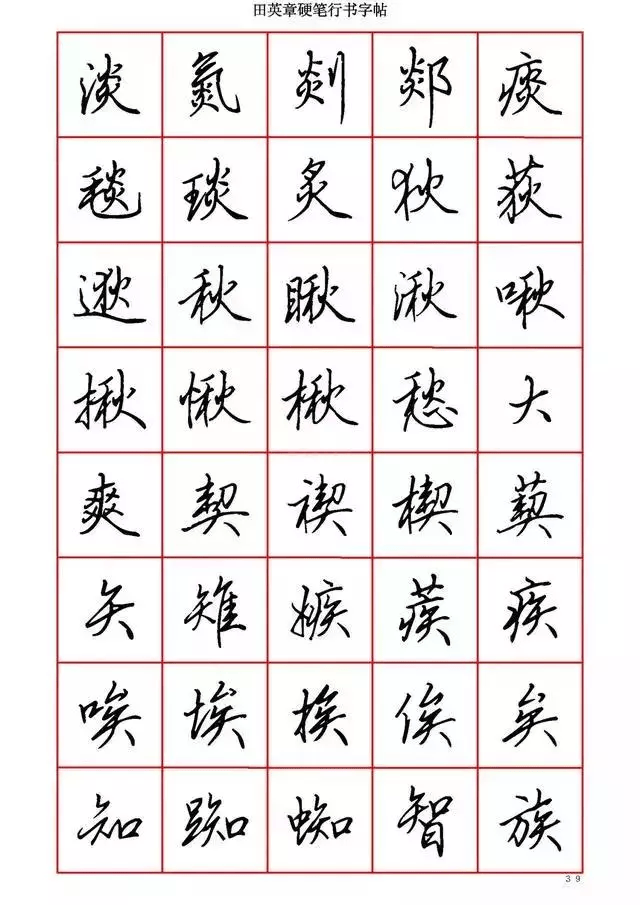 田英章硬笔行书字帖
淡 氮 剡 郯 痰
毯 琰 炙 狄 荻
逖 秋 瞅 湫 啾
揪 愀 楸 愁 大
爽 契 禊 楔 葜
矢 雉 嫉 蒺 疾
唉 埃 挨 俟 矣
知 踟 蜘 智 族
39